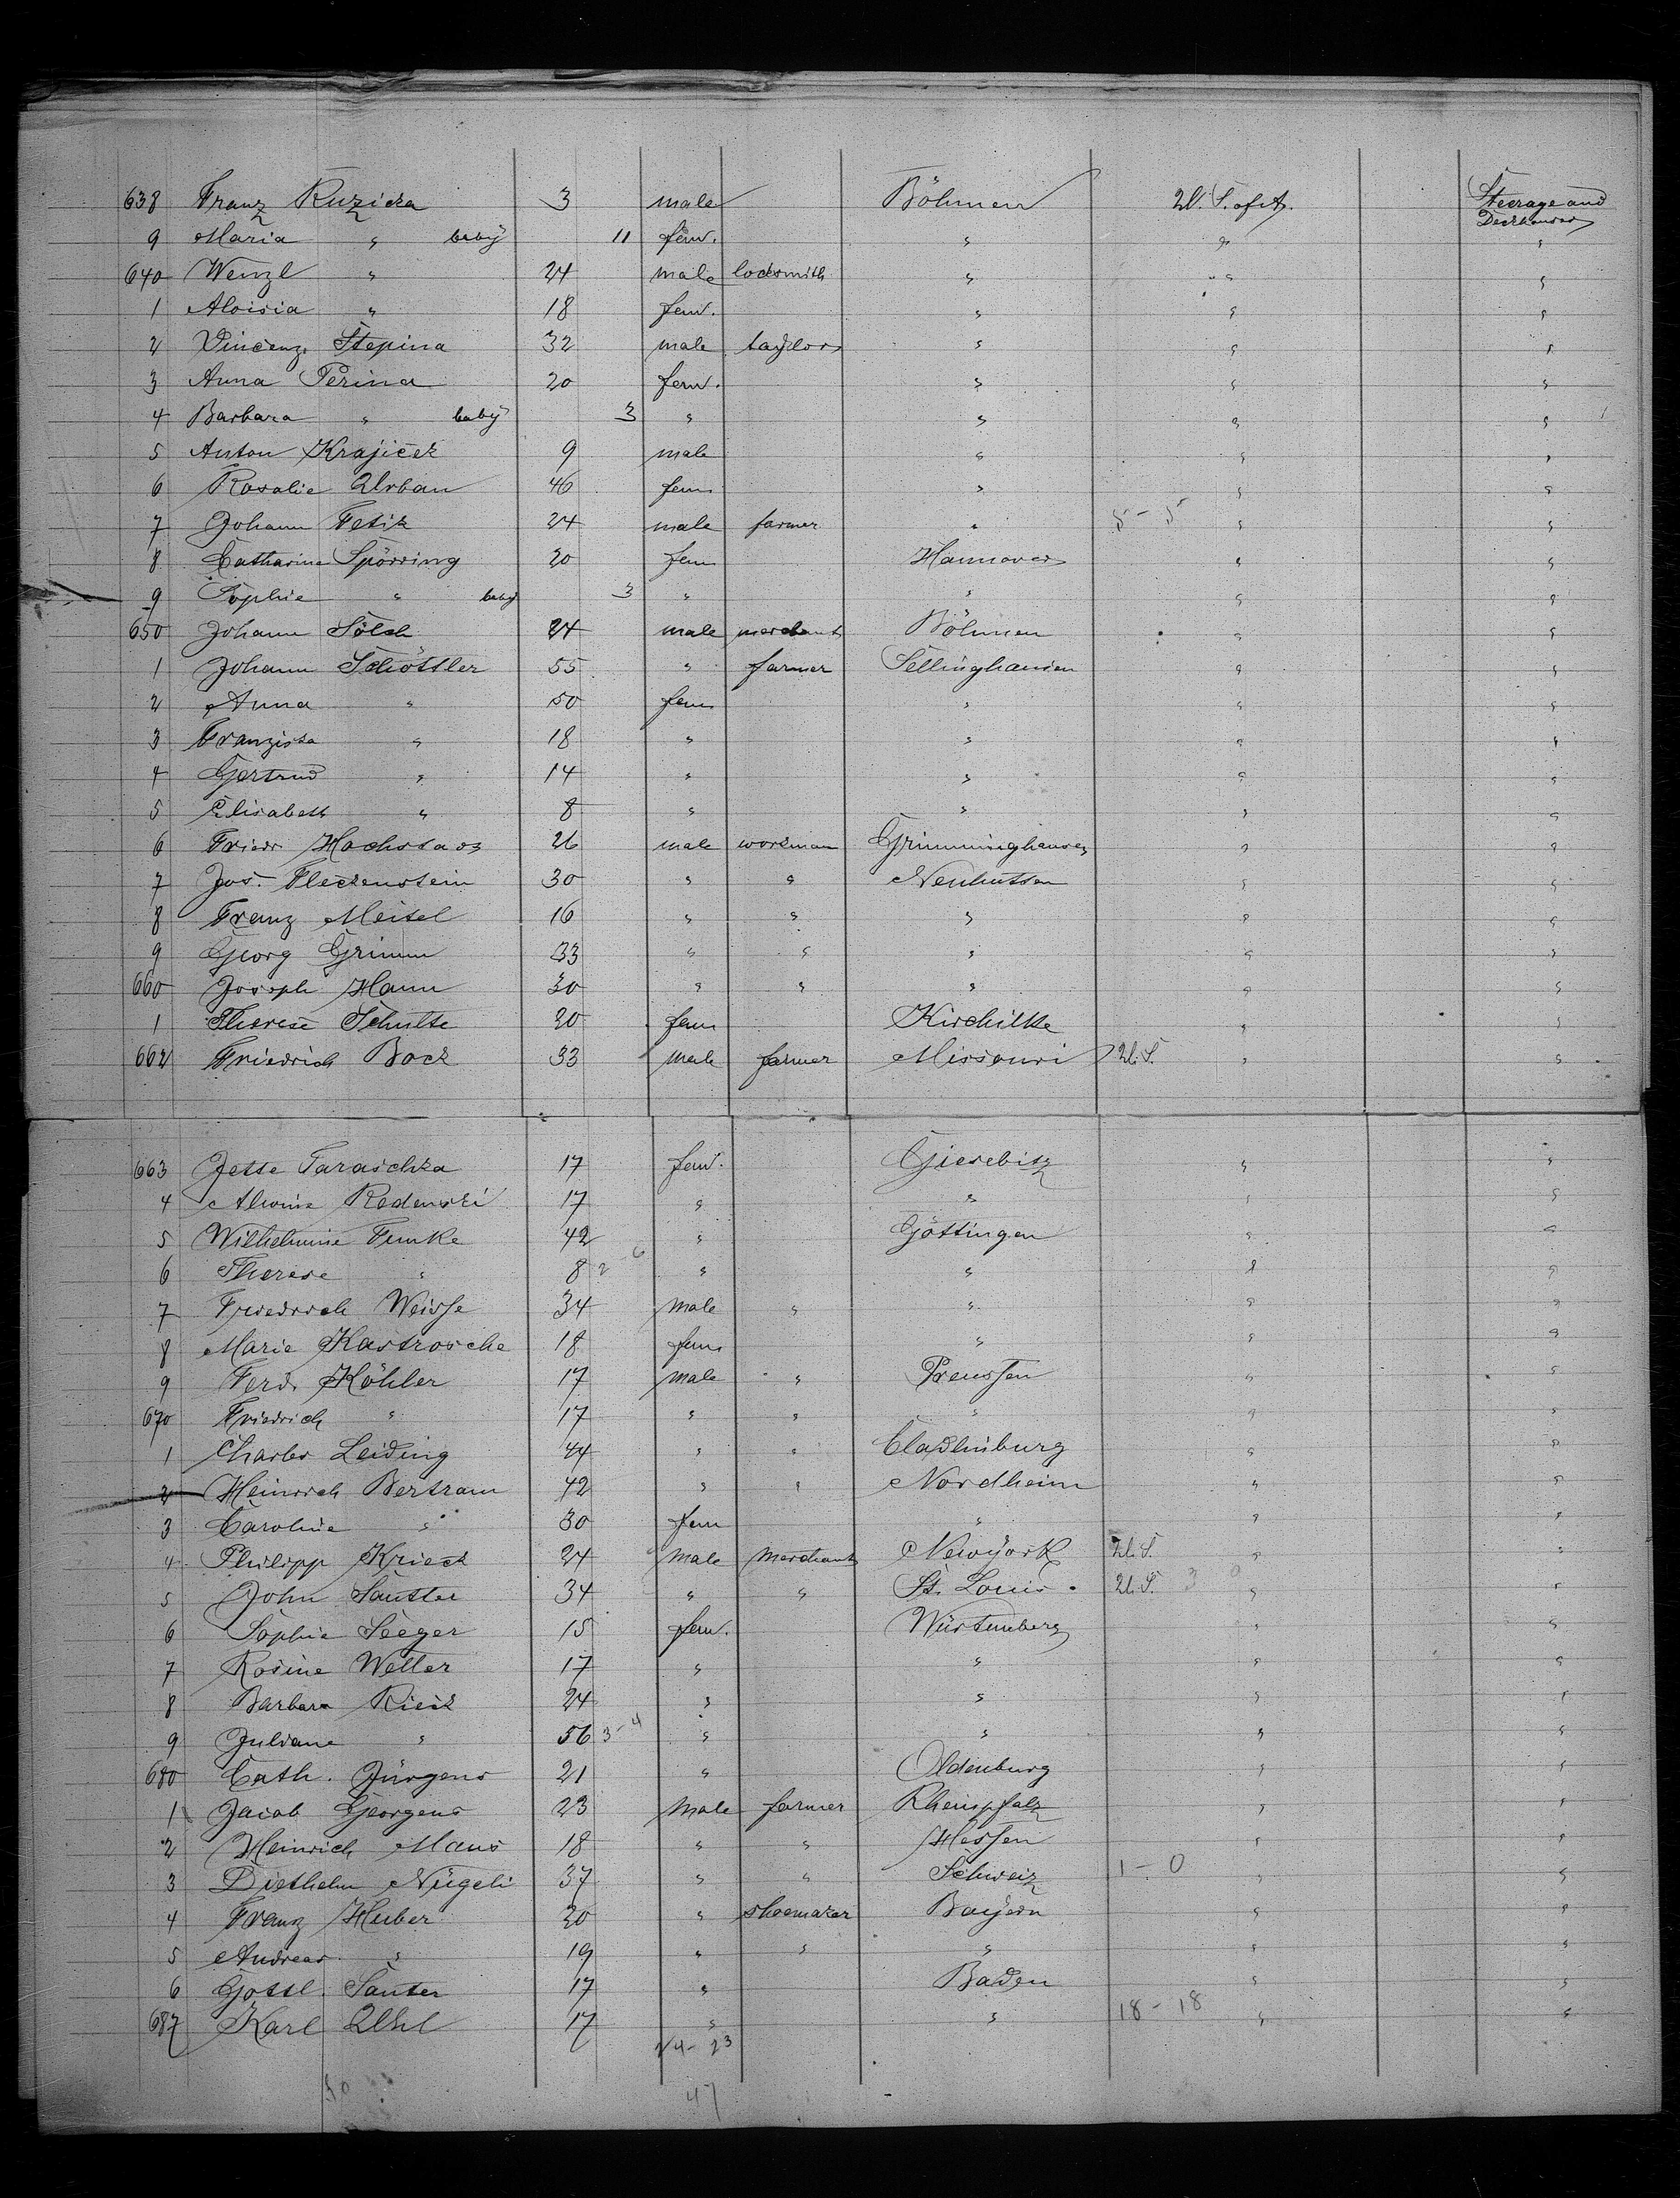 638 Franz Ruzicka 3 male Böhmen U. S. of A. Steerage and
Deckhouses
9 Maria " baby 11 fem. " " "
640 Wenzl " 24 male locksmith " " "
1 Aloisia " 18 fem. " " "
2 Vincenz Stepina 32 male taylor " " "
3 Anna Perina 20 fem. " " "
4 Barbara " baby 3 " " " "
5 Anton Krajiček 9 male " " "
6 Rosalie Urban 46 fem " " "
7 Johann Fetik 24 male farmer " 5-5 " "
8 Catharine Spörring 20 fem Hannover " "
9 Sophie " baby 3 " " " "
650 Johann Sölch 24 male merchant Böhmen " "
1 Johann Schöttler 55 " farmer Sellinghausen " "
2 Anna " 50 fem " " "
3 Franziska " 18 " " " "
4 Gertrud " 14 " " " "
5 Elisabeth " 8 " " " "
6 Friedr Hochstaos 26 male workman Grimminghausen " "
7 Jos. Fleckenstein 30 " " Neuhütten " "
8 Franz Meisel 16 " " " " "
9 Georg Grimm 33 " " " " "
660 Joseph Hann 30 " " " " "
1 Therese Schulte 20 fem Kirchilke " "
662 Friedrich Bock 33 male farmer Missouri U. S. " "
663 Jette Taraschka 17 fem. Giesebitz " "
4 Alwine Redenski 17 " " " "
5 Wilhelmine Funke 42 " Göttingen " "
6 Therese " 8 2 6 " " " "
7 Friedrich Weisse 34 male " " " "
8 Marie Kastrosche 18 fem " " "
9 Ferd. Köhler 17 male " Preussen " "
670 Friedrich " 17 " " " " "
1 Charles Leiding 44 " " Cladlinburg " "
2 Heinrich Bertram 42 " " Nordheim " "
3 Caroline " 30 fem " " "
4 Philipp Krieck 24 male merchant Newyork U. S. " "
5 John Sautter 34 " " St. Louis. U. S. 3 0 " "
6 Sophie Seeger 15 fem. Würtemberg " "
7 Rosine Weller 17 " " " "
8 Barbara Rieck 24 " " " "
9 Juliane " 56 3-4 " " " "
680 Cath. Jürgens 21 " Oldenburg " "
1 Jacob Georgens 23 male farmer Rheinpfalz " "
2 Heinrich Maus 18 " " Hessen " "
3 Diethelm Nügeli 37 " " Schweiz 1-0 " "
4 Franz Huber 20 " shoemaker Bayern " "
5 Andreas " 19 " " " " "
6 Gottl. Sauter 17 " Baden " "
687 Karl Uhl 17 " " 18-18 " "
24-23
47